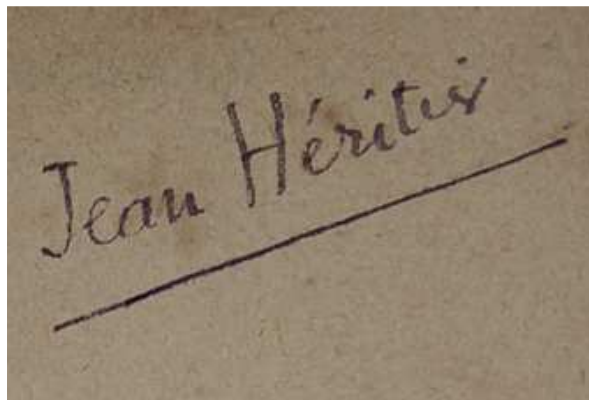 Jean Héritier